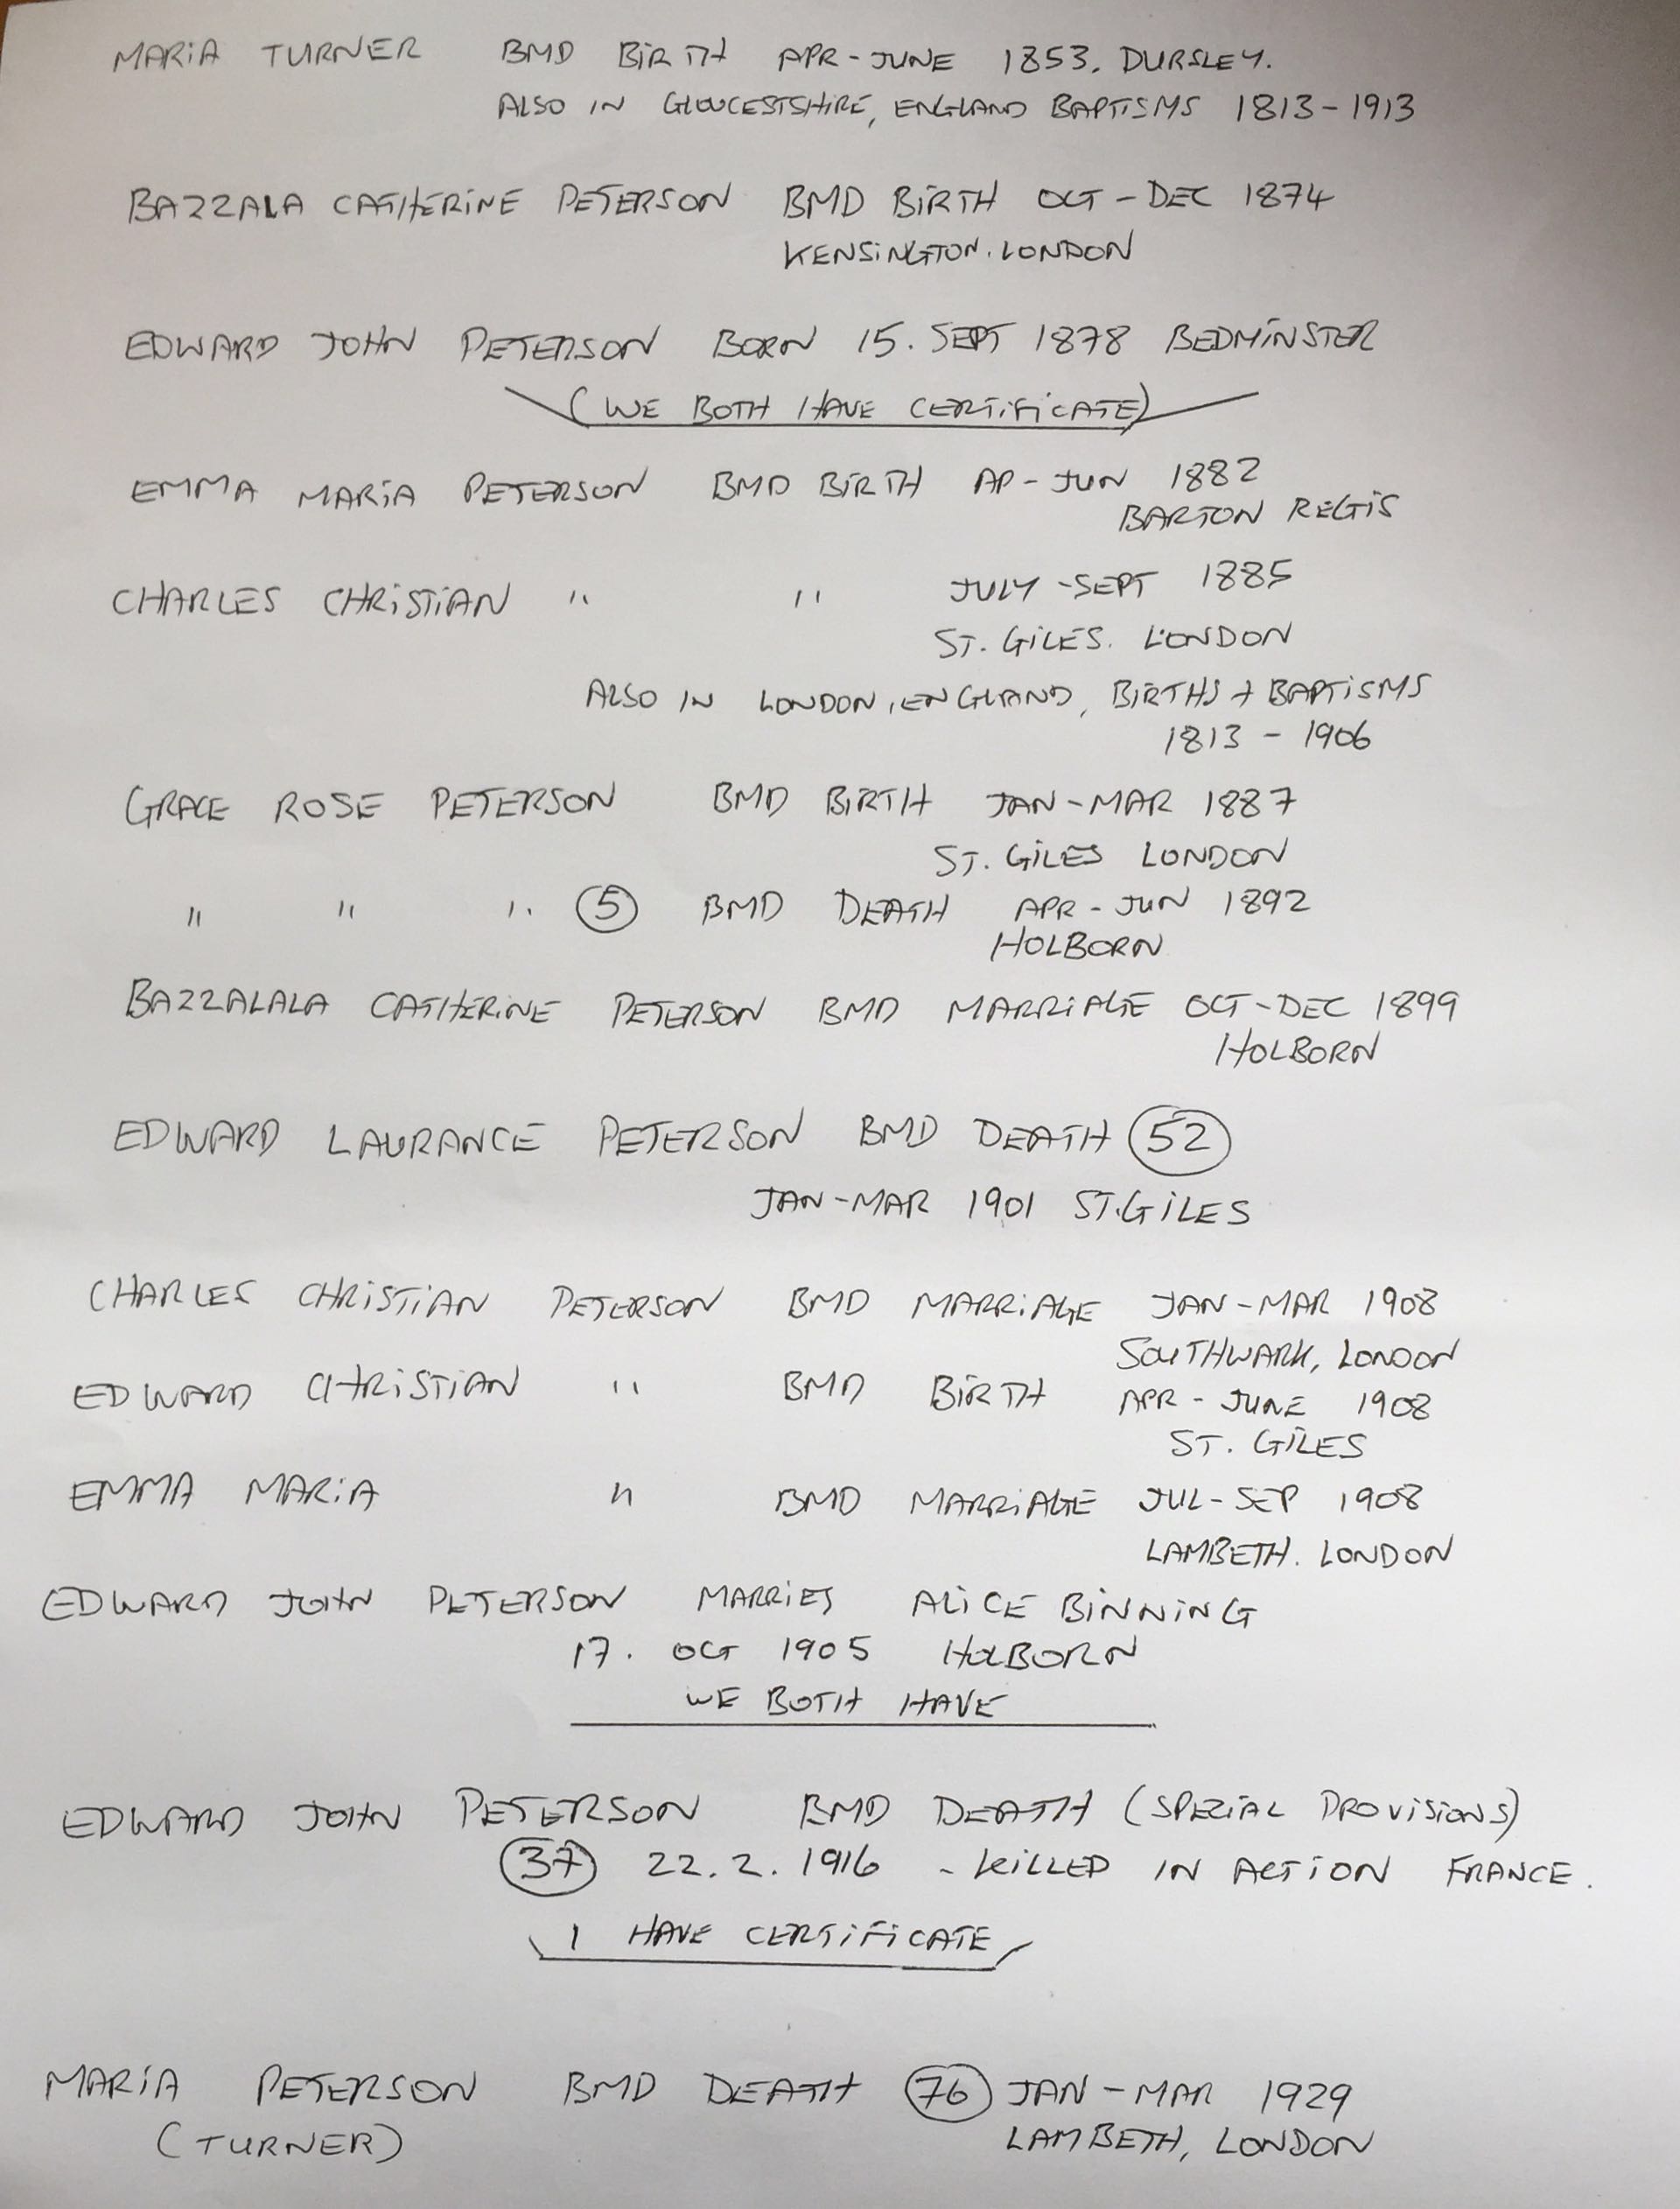 MARIA TURNER BMD BIRTH APR-JUNE 1853. DURSLEY.
ALSO IN GLOUCESTSHIRE, ENGLAND BAPTISMS 1813-1913
BAZZALA CATHERINE PETERSON BMD BIRTH OCT-DEC 1874
KENSINGTON. LONDON
EDWARD JOHN PETERSON BORN 15. SEPT 1878 BEDMINSTER
(WE BOTH HAVE CERTIFICATE)
EMMA MARIA PETERSON BMD BIRTH AP-JUN 1882
BARTON REGIS
CHARLES CHRISTIAN " " JULY-SEPT 1885
ST. GILES. LONDON
ALSO IN LONDON, ENGLAND, BIRTHS + BAPTISMS
1813 - 1906
GRACE ROSE PETERSON BMD BIRTH JAN-MAR 1887
ST. GILES LONDON
" " " 5 BMD DEATH APR-JUN 1892
HOLBORN
BAZZALALA CATHERINE PETERSON BMD MARRIAGE OCT-DEC 1899
HOLBORN
EDWARD LAURANCE PETERSON BMD DEATH 52
JAN-MAR 1901 ST. GILES
CHARLES CHRISTIAN PETERSON BMD MARRIAGE JAN-MAR 1908
SOUTHWARK, LONDON
EDWARD CHRISTIAN " BMD BIRTH APR-JUNE 1908
ST. GILES
EMMA MARIA " BMD MARRIAGE JUL-SEP 1908
LAMBETH. LONDON
EDWARD JOHN PETERSON MARRIES ALICE BINNING
17. OCT 1905 HOLBORN
WE BOTH HAVE
EDWARD JOHN PETERSON BMD DEATH (SPECIAL PROVISIONS)
37 22.2.1916 - KILLED IN ACTION FRANCE.
I HAVE CERTIFICATE
MARIA PETERSON BMD DEATH 76 JAN-MAR 1929
(TURNER) LAMBETH, LONDON